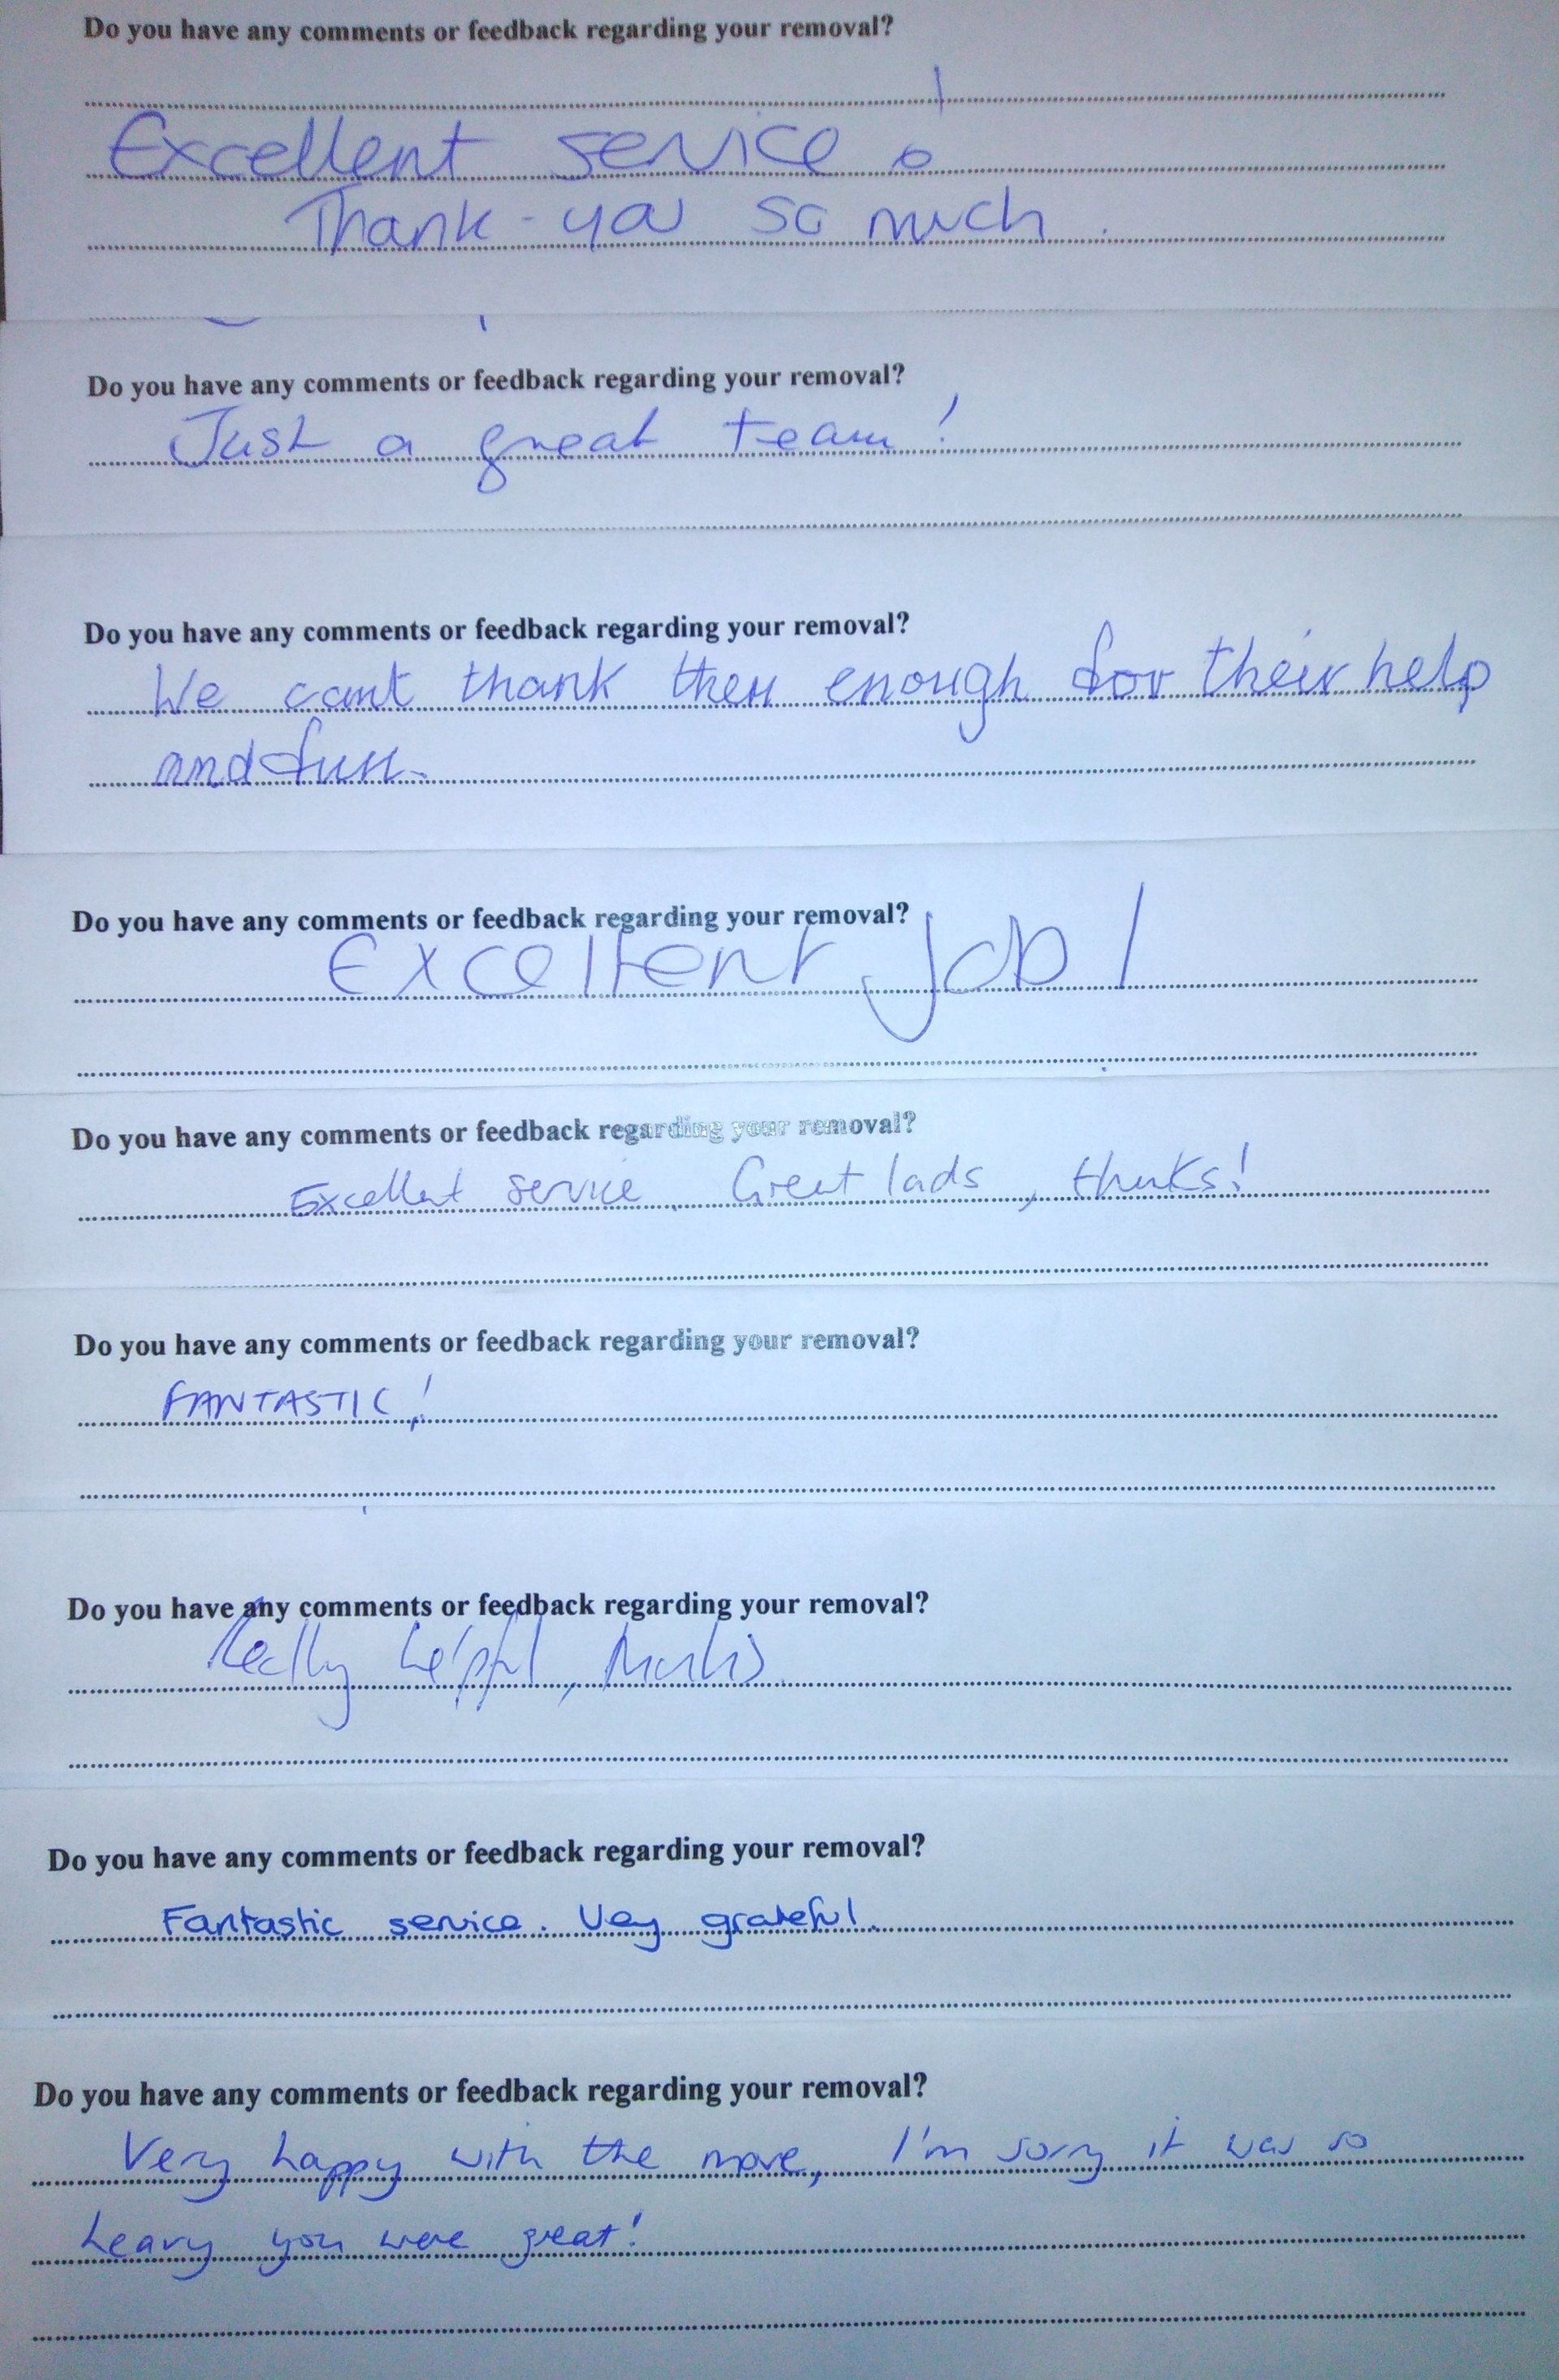 Do you have any comments or feedback regarding your removal?
Excellent service !
Thank-you so much.
Do you have any comments or feedback regarding your removal?
Just a great team!
Do you have any comments or feedback regarding your removal?
We cant thank them enough for their help
and fun.
Do you have any comments or feedback regarding your removal?
Excellent job!
Do you have any comments or feedback regarding your removal?
Excellent service. Great lads, thanks!
Do you have any comments or feedback regarding your removal?
FANTASTIC!
Do you have any comments or feedback regarding your removal?
Really helpful, thanks
Do you have any comments or feedback regarding your removal?
Fantastic service. Vey grateful.
Do you have any comments or feedback regarding your removal?
Very happy with the move, I'm sorry it was so
heavy you were great!